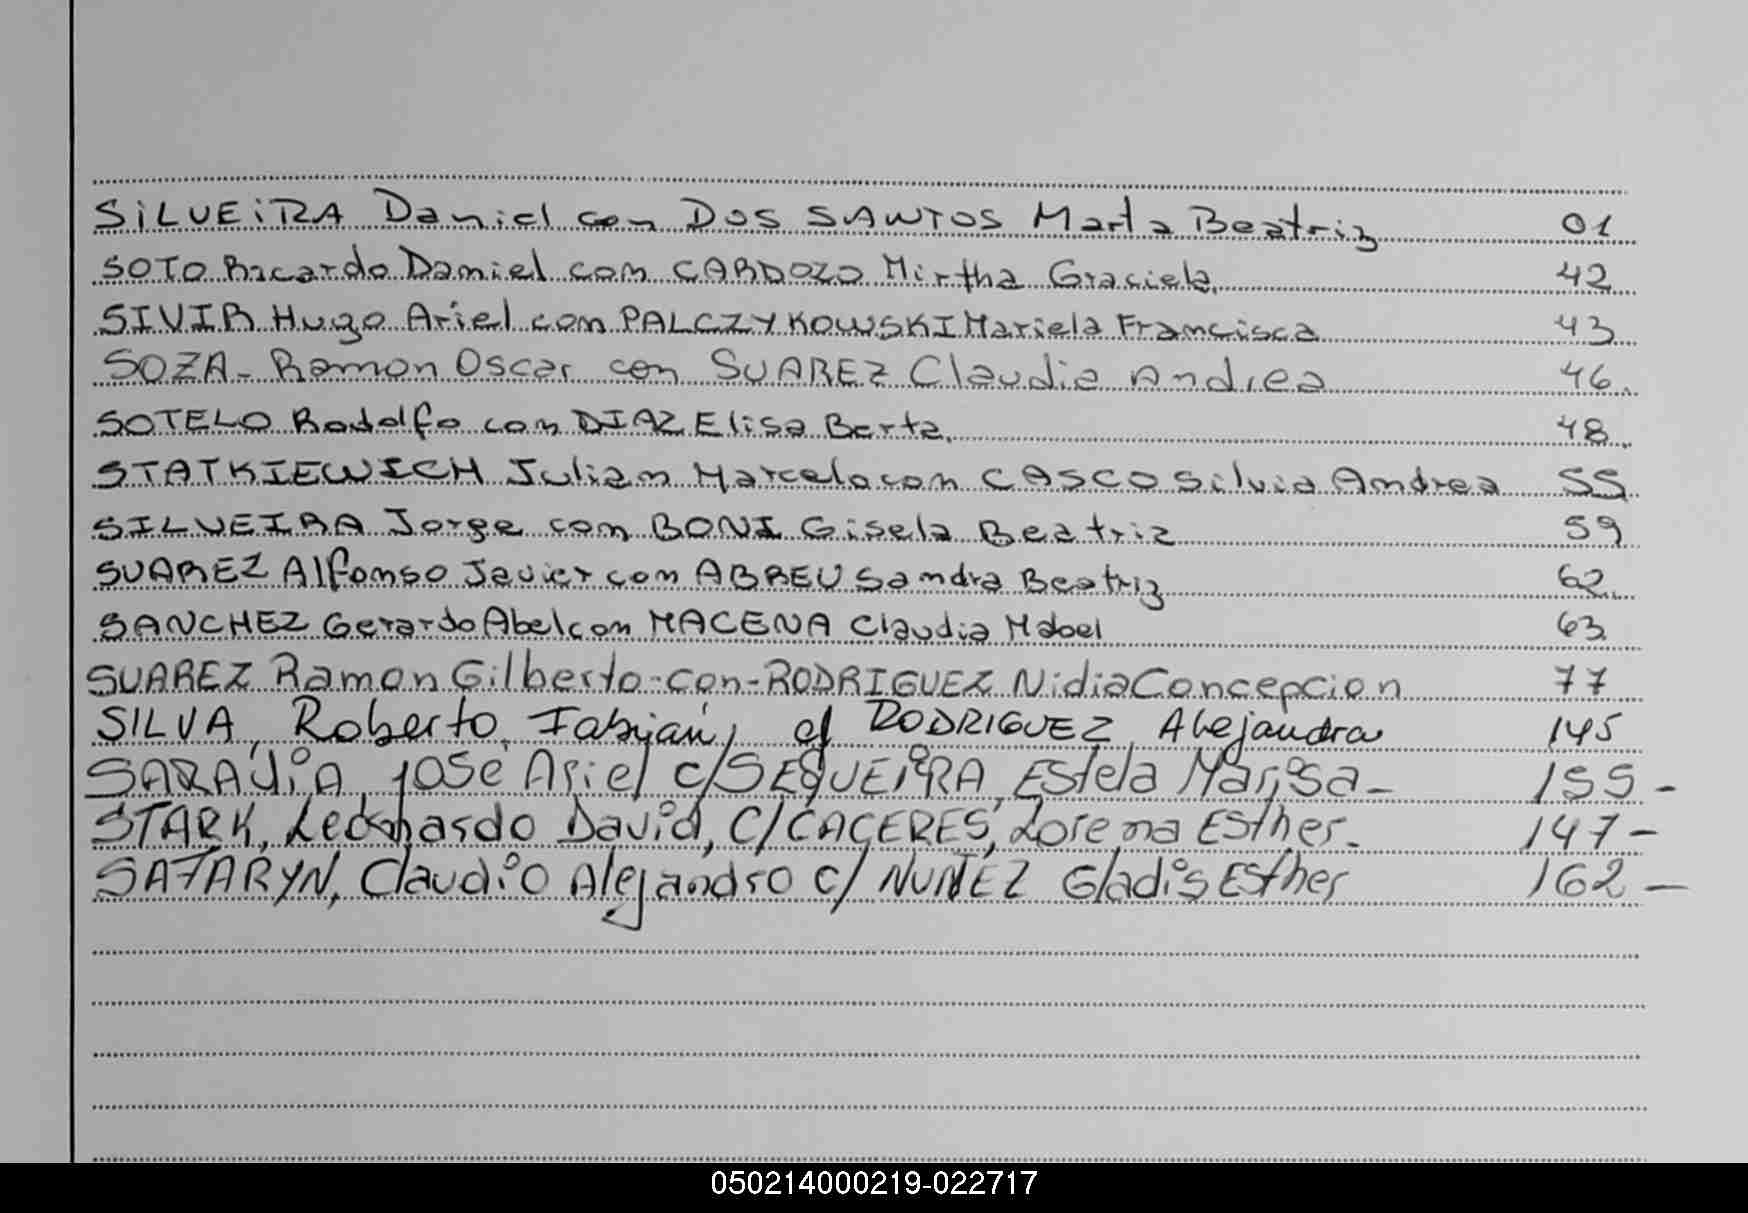 SILVEIRA Daniel con DOS SANTOS Marta Beatriz 01
SOTO Ricardo Daniel con CARDOZO Mirtha Graciela. 42
SIVIR Hugo Ariel con PALCZYKOWSKI Mariela Francisca 43
SOZA - Ramon Oscar con SUAREZ Claudia Andrea 46.
SOTELO Rodolfo con DIAZ Elisa Berta. 48
STATKIEWICH Julian Marcelo con CASCO Silvia Andrea 55
SILVEIRA Jorge con BONI Gisela Beatriz 59
SUAREZ Alfonso Javier con ABREU Sandra Beatriz 62
SANCHEZ Gerardo Abel con MACENA Claudia Mabel 63
SUAREZ Ramon Gilberto-con-RODRIGUEZ Nidia Concepcion 77
SILVA, Roberto Fabián, c/ RODRIGUEZ Alejandra 145
José Ariel c/SEQUEIRA, Estela Marisa- 155-
STARK, David, C/CACERES, Lorena Esther. 147-
SAFARYN, Claudio Alejandro c/ NUÑEZ Gladis Esther 162-
050214000219-022717